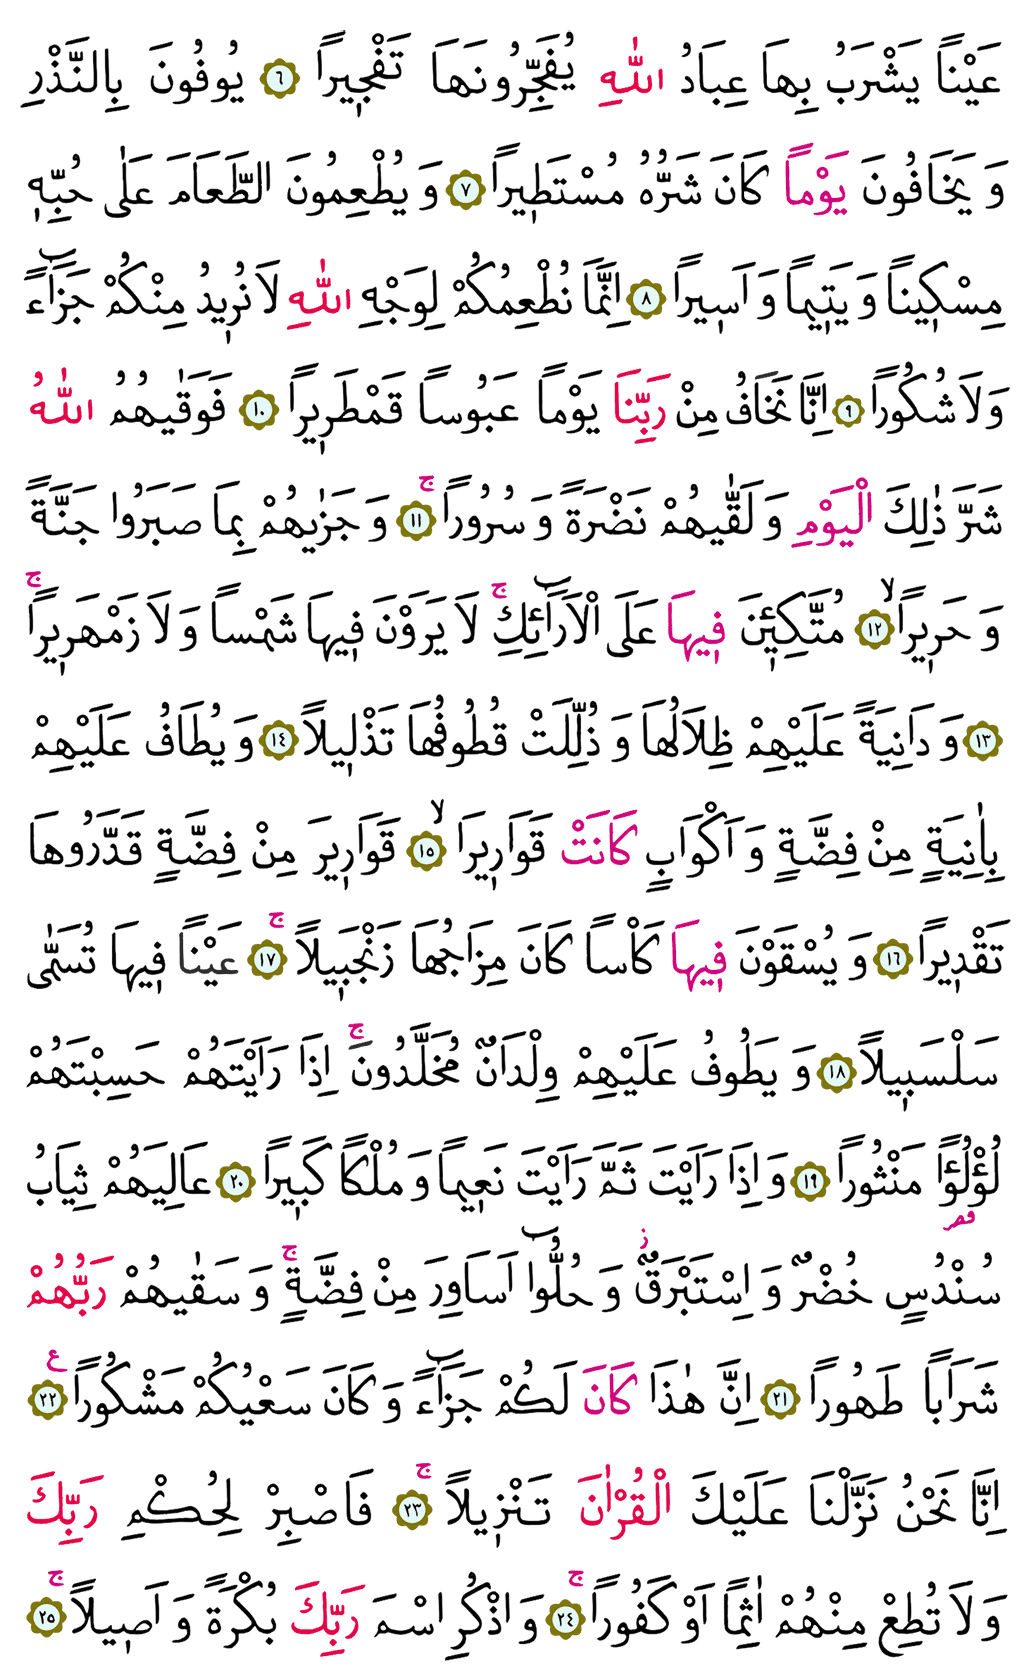 عَيْناً يَشْرَبُ بِهَا عِبَادُ اللّٰهِ يُفَجِّرُونَهَا تَفْجٖيراً ﴿٦﴾ يُوفُونَ بِالنَّذْرِ
وَ يَخَافُونَ يَوْماً كَانَ شَرُّهُ مُسْتَطٖيراً ﴿٧﴾ وَ يُطْعِمُونَ الطَّعَامَ عَلٰى حُبِّهٖ
مِسْكٖيناً وَ يَتٖيماً وَ اَسٖيراً ﴿٨﴾ اِنَّمَا نُطْعِمُكُمْ لِوَجْهِ اللّٰهِ لَا نُرٖيدُ مِنْكُمْ جَزَٓاءً
وَلَا شُكُوراً ﴿٩﴾ اِنَّا نَخَافُ مِنْ رَبِّنَا يَوْماً عَبُوساً قَمْطَرٖيراً ﴿١٠﴾ فَوَقٰيهُمُ اللّٰهُ
شَرَّ ذٰلِكَ الْيَوْمِ وَ لَقّٰيهُمْ نَضْرَةً وَ سُرُوراًۚ ﴿١١﴾ وَ جَزٰيهُمْ بِمَا صَبَرُوا جَنَّةً
وَ حَرٖيراًۙ ﴿١٢﴾ مُتَّكِـٖٔينَ فٖيهَا عَلَى الْاَرَٓائِكِۚ لَا يَرَوْنَ فٖيهَا شَمْساً وَ لَا زَمْهَرٖيراًۚ
﴿١٣﴾ وَ دَانِيَةً عَلَيْهِمْ ظِلَالُهَا وَ ذُلِّلَتْ قُطُوفُهَا تَذْلٖيلاً ﴿١٤﴾ وَ يُطَافُ عَلَيْهِمْ
بِاٰنِيَةٍ مِنْ فِضَّةٍ وَ اَكْوَابٍ كَانَتْ قَوَارٖيرَاۙ ﴿١٥﴾ قَوَارٖيرَ مِنْ فِضَّةٍ قَدَّرُوهَا
تَقْدٖيراً ﴿١٦﴾ وَ يُسْقَوْنَ فٖيهَا كَأْساً كَانَ مِزَاجُهَا زَنْجَبٖيلاًۚ ﴿١٧﴾ عَيْناً فٖيهَا تُسَمّٰى
سَلْسَبٖيلاً ﴿١٨﴾ وَ يَطُوفُ عَلَيْهِمْ وِلْدَانٌ مُخَلَّدُونَۚ اِذَا رَاَيْتَهُمْ حَسِبْتَهُمْ
لُؤْلُؤاً مَنْثُوراً ﴿١٩﴾ وَ اِذَا رَاَيْتَ ثَمَّ رَاَيْتَ نَعٖيماً وَ مُلْكاً كَبٖيراً ﴿٢٠﴾ عَالِيَهُمْ ثِيَابُ
سُنْدُسٍ خُضْرٌ وَ اِسْتَبْرَقٌؗ وَ حُلُّٓوا اَسَاوِرَ مِنْ فِضَّةٍۚ وَ سَقٰيهُمْ رَبُّهُمْ
شَرَاباً طَهُوراً ﴿٢١﴾ اِنَّ هٰذَا كَانَ لَكُمْ جَزَٓاءً وَ كَانَ سَعْيُكُمْ مَشْكُوراً ع ﴿٢٢﴾
اِنَّا نَحْنُ نَزَّلْنَا عَلَيْكَ الْقُرْاٰنَ تَنْزٖيلاًۚ ﴿٢٣﴾ فَاصْبِرْ لِحُكْمِ رَبِّكَ
وَ لَا تُطِعْ مِنْهُمْ اٰثِماً اَوْ كَفُوراًۚ ﴿٢٤﴾ وَ اذْكُرِ اسْمَ رَبِّكَ بُكْرَةً وَ اَصٖيلاًۚ ﴿٢٥﴾